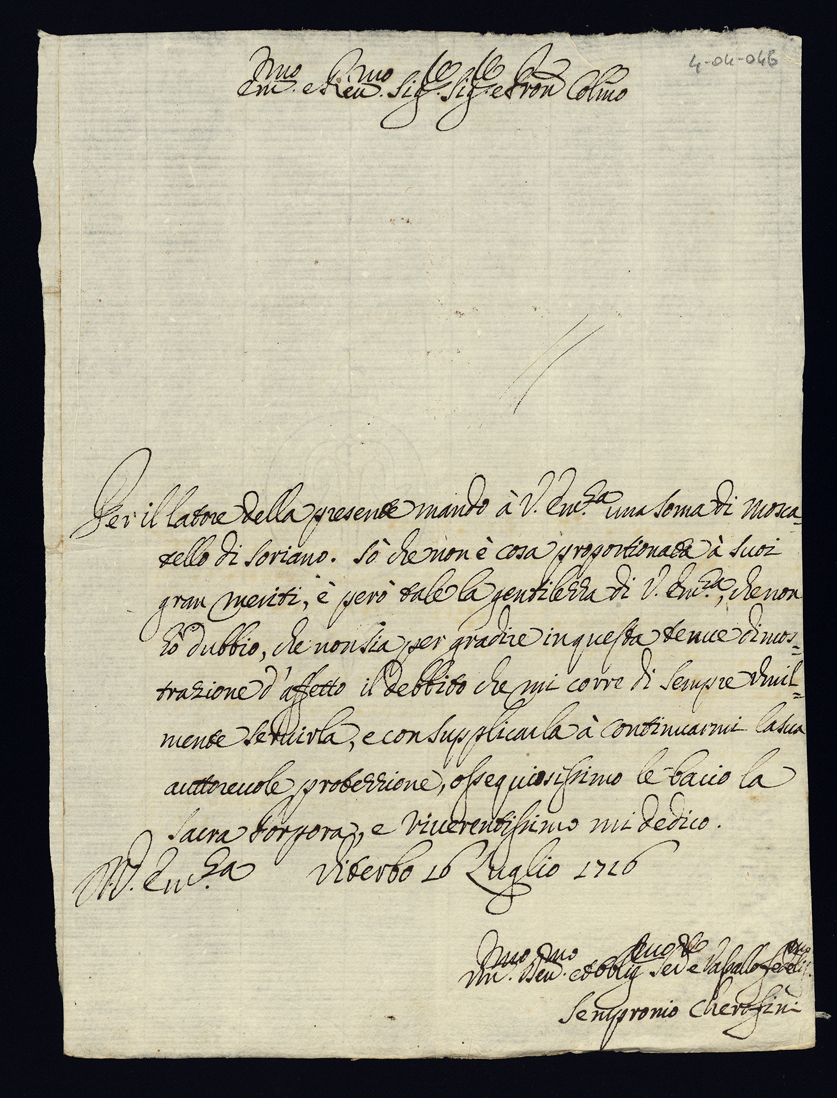 4-04-046
Em.mo e Reu.mo Sig.re Sig.re e Pron Colmo
Per il latore della presente mando à V. Em.za una soma di Mosca=
tello di Soriano. Sò che non è cosa proportionata à suoi
gran meriti, è però tale la gentilezza di V. Em.za, che non
hò dubbio, che non sia per gradire in questa tenue dimos=
trazione d'affetto il debbito che mi corre di sempre Vmil=
mente seruirla, e con supplicarla à continuarmi la sua
auttoreuole protezzione, ossequiosissimo le bacio la
Sacra Porpora, e riuerentissimo mi dedico.
D. V. Em.za Viterbo 16 Luglio 1716
Vm.mo Deu.mo et obblig Ser.e e Vassallo
Sempronio Cherofini